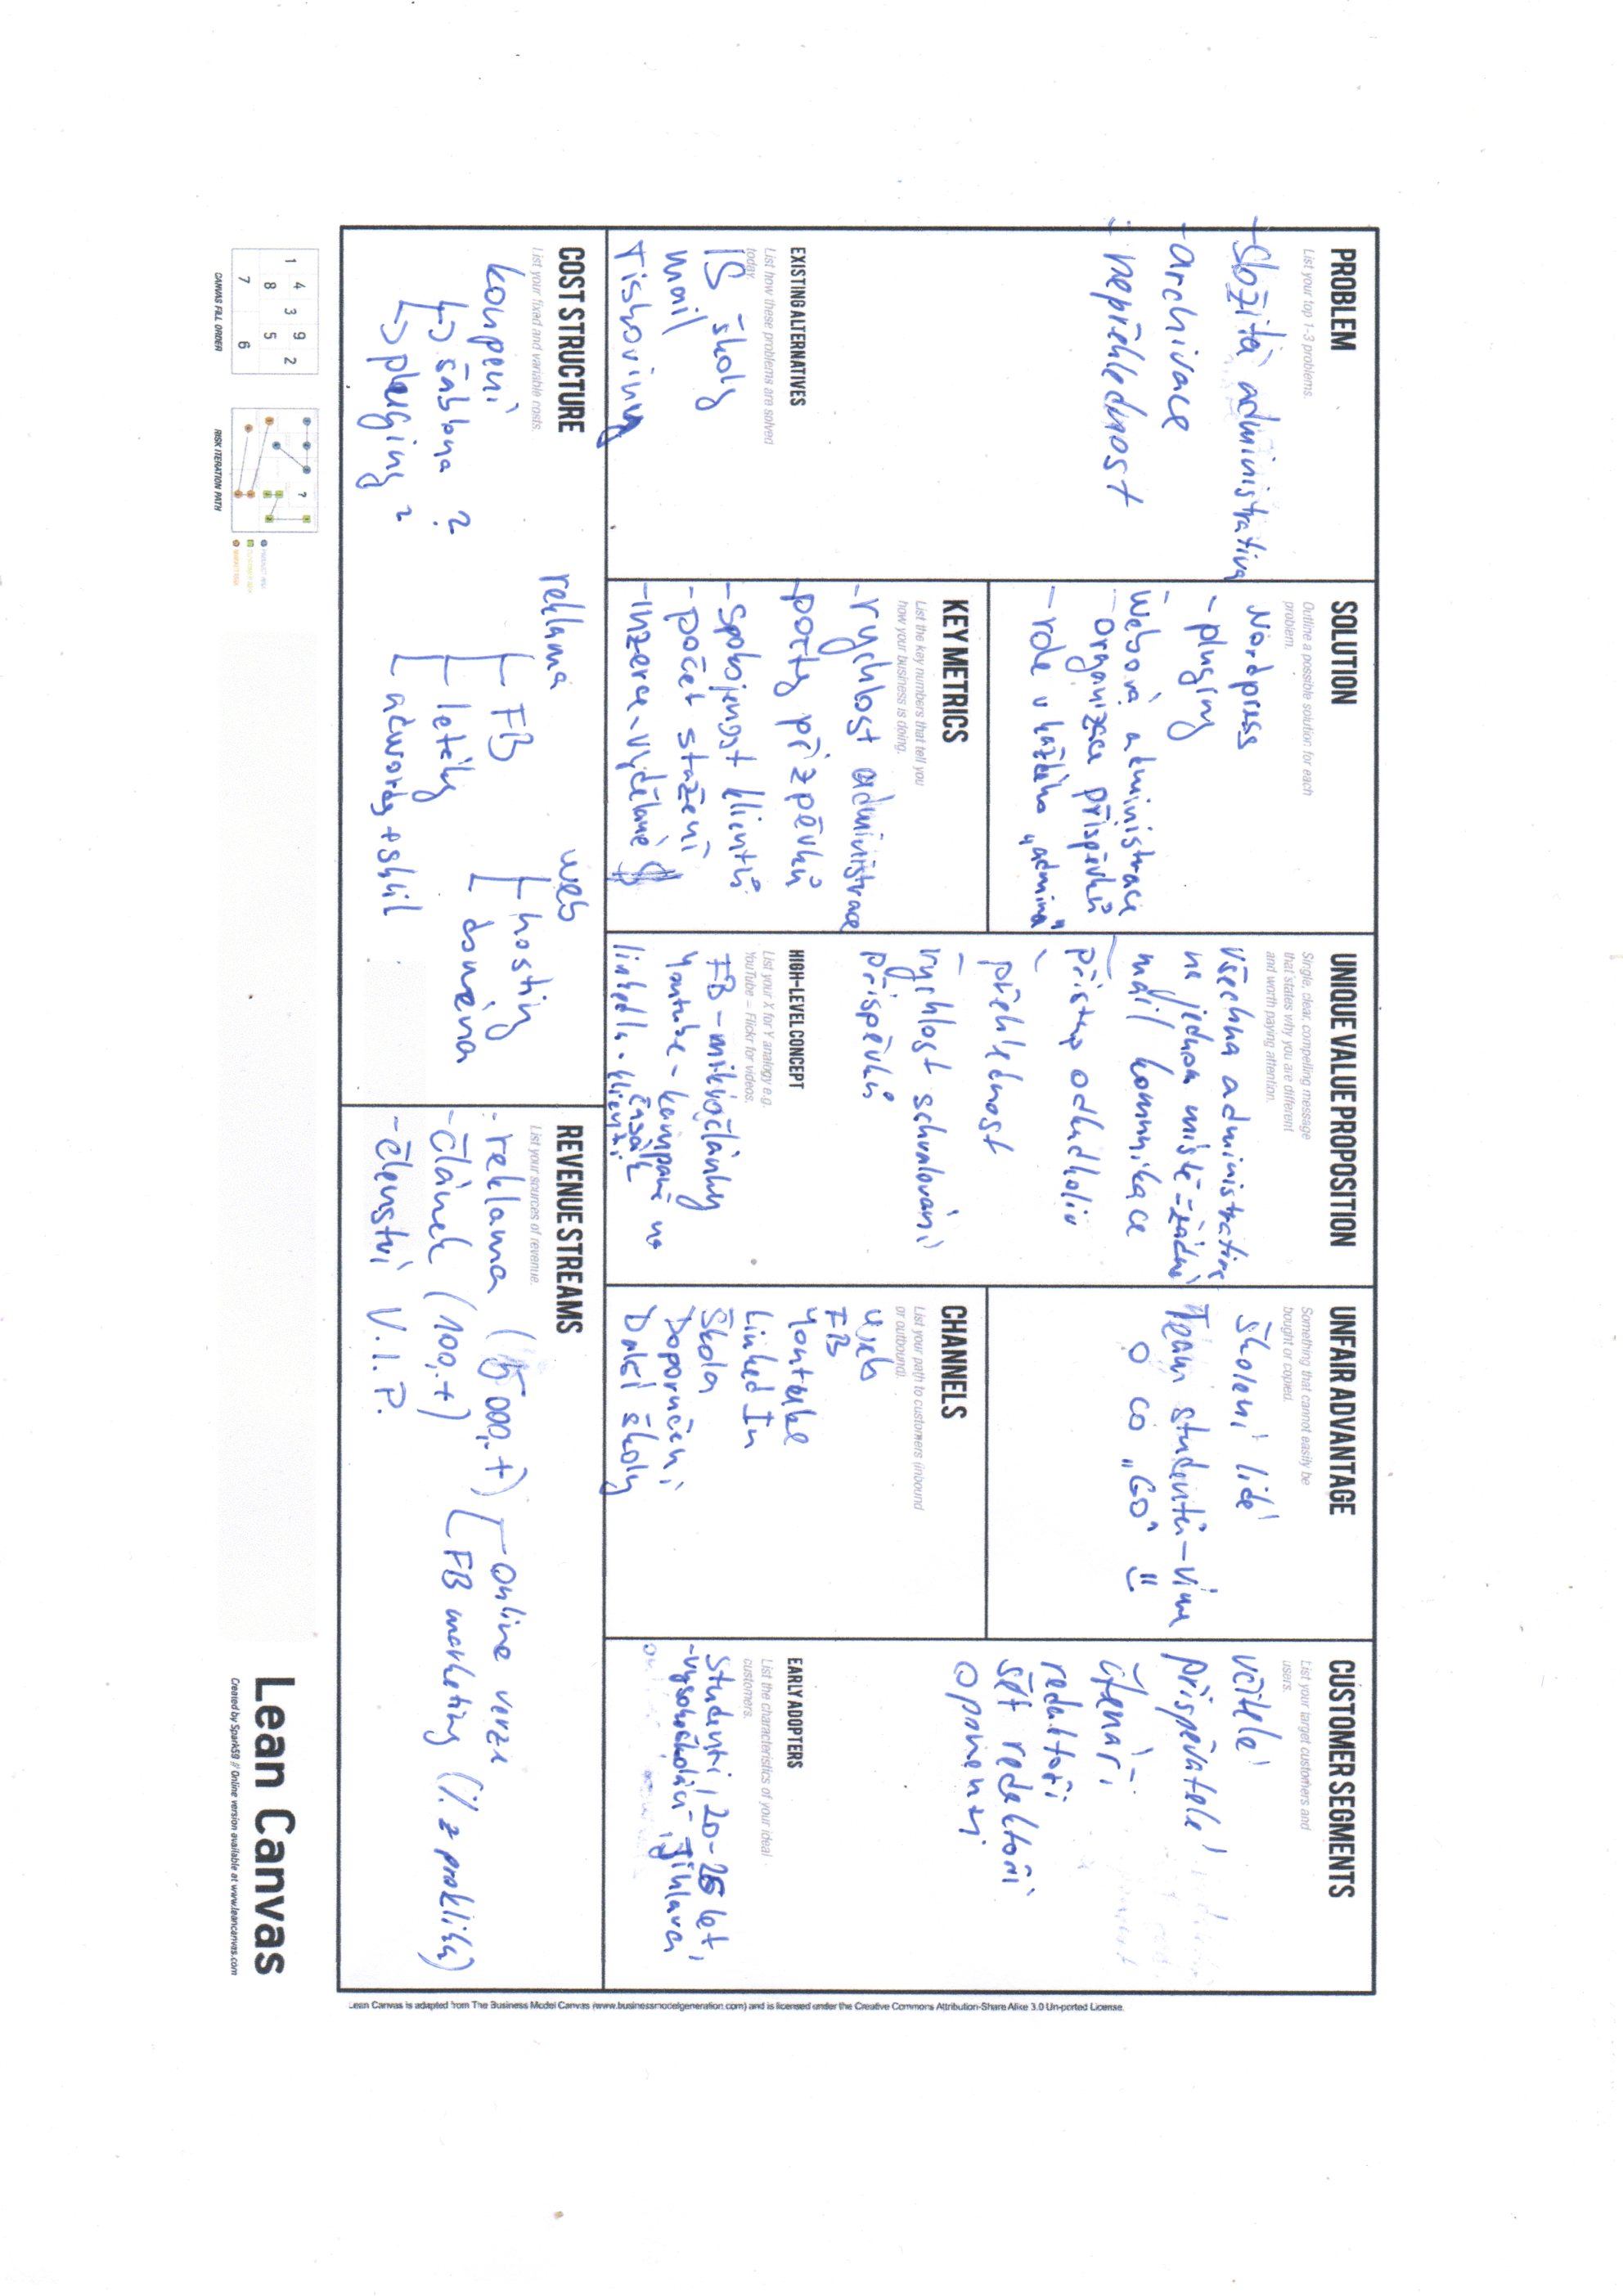 PROBLEM
List your top 1-3 problems.
- Složitá administrativa
- archivace
- nepřehlednost
EXISTING ALTERNATIVES
List how these problems are solved
today.
IS školy
mail
Tiskoviny
SOLUTION
Outline a possible solution for each
problem.
Wordpress
- pluginy
Webová administrace
- Organizace příspěvků
- role u každého „admina"
KEY METRICS
List the key numbers that tell you
how your business is doing.
- rychlost administrace
- počty přizpěvků
- Spokojenost klientů
- počet stažení
- Inzerce - vydělané $
UNIQUE VALUE PROPOSITION
Single, clear, compelling message
that states why you are different
and worth paying attention.
Všechna administrativa
na jednom místě = žádná
mail komunikace
přístup odkudkoliv
přehlednost
rychlost schvalování
příspěvků
HIGH-LEVEL CONCEPT
List your X for Y analogy e.g.
YouTube = Flickr for videos.
FB - mikročlánky
Youtube - kampaně na
časák
linkedIn - klienti
UNFAIR ADVANTAGE
Something that cannot easily be
bought or copied.
školení lidé
Team studentů - víme
o co „GO"
CHANNELS
List your path to customers (inbound
or outbound).
web
FB
Youtube
Linked In
Škola
Doporučení
Další školy
CUSTOMER SEGMENTS
List your target customers and
users.
učitelé
přispěvatelé
čtenáři
redaktoři
šéf redaktoři
oponenti
EARLY ADOPTERS
List the characteristics of your ideal
customers.
studenti, 20-26 let,
- vysokoškoláci, Jihlava
COST STRUCTURE
List your fixed and variable costs.
koupení
↳ šablona ?
↳ pluginy ?
reklama
FB
letáky
adwords + sklik
web
hosting
doména
REVENUE STREAMS
List your sources of revenue.
- reklama (5 000,- +)
- článek (100,- +)
- členství V.I.P.
Online verze
FB marketing (% z prokliků)
Lean Canvas is adapted from The Business Model Canvas (www.businessmodelgeneration.com) and is licensed under the Creative Commons Attribution-Share Alike 3.0 Un-ported License.
1 4 3 9 2
8 5
7 6
CANVAS FILL ORDER
?
RISK ITERATION PATH
Lean Canvas
Created by Spark59 // Online version available at www.leancanvas.com